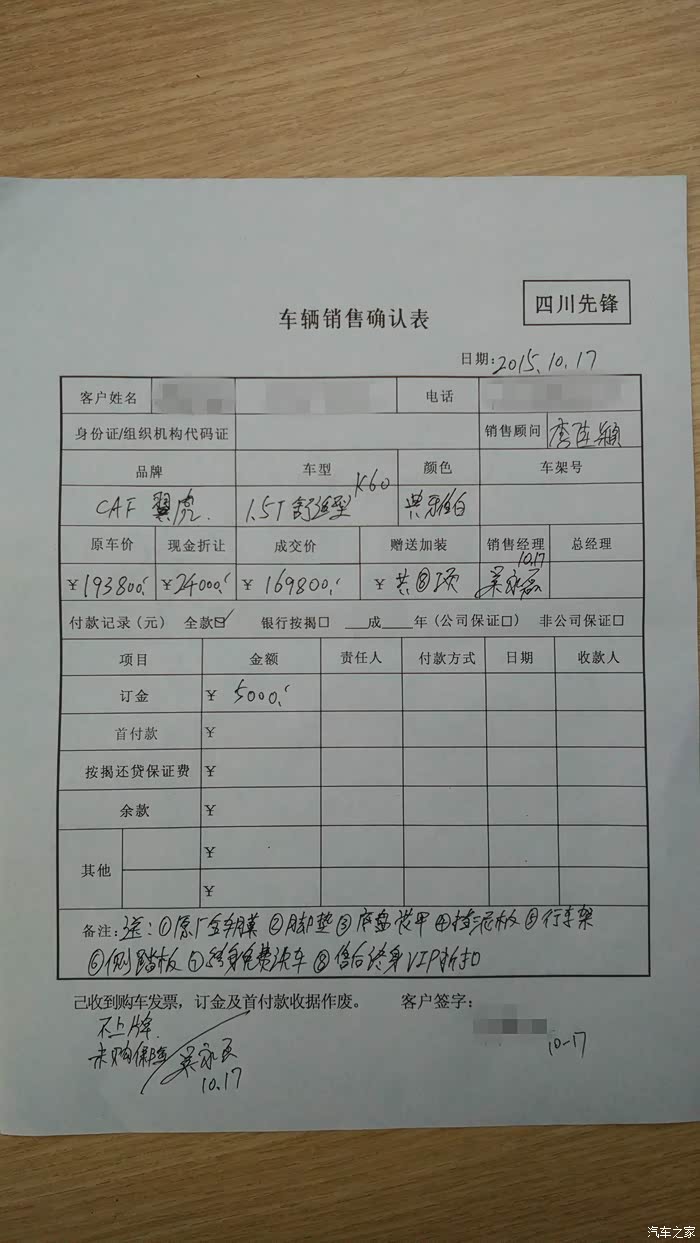 四川先锋
车辆销售确认表
日期:2015.10.17
客户姓名 电话
身份证/组织机构代码证 销售顾问
品牌 车型 颜色 车架号
CAF 翼虎 1.5T 舒适型 K60 典雅白
原车价 现金折让 成交价 赠送加装 销售经理 总经理
10.17
¥193800 ¥24000 ¥169800 ¥共⑧项
付款记录(元) 全款☑ 银行按揭□ ___成____年(公司保证□) 非公司保证□
项目 金额 责任人 付款方式 日期 收款人
订金 ¥ 5000
首付款 ¥
按揭还贷保证费 ¥
余款 ¥
其他 ¥
¥
备注:送:①原厂全车膜 ②脚垫 ③底盘装甲 ④挡泥板 ⑤行车架
⑥侧踏板 ⑦终身免费洗车 ⑧售后终身VIP折扣
己收到购车发票，订金及首付款收据作废。 客户签字:
不上牌
未购保险
10.17
10-17
汽车之家